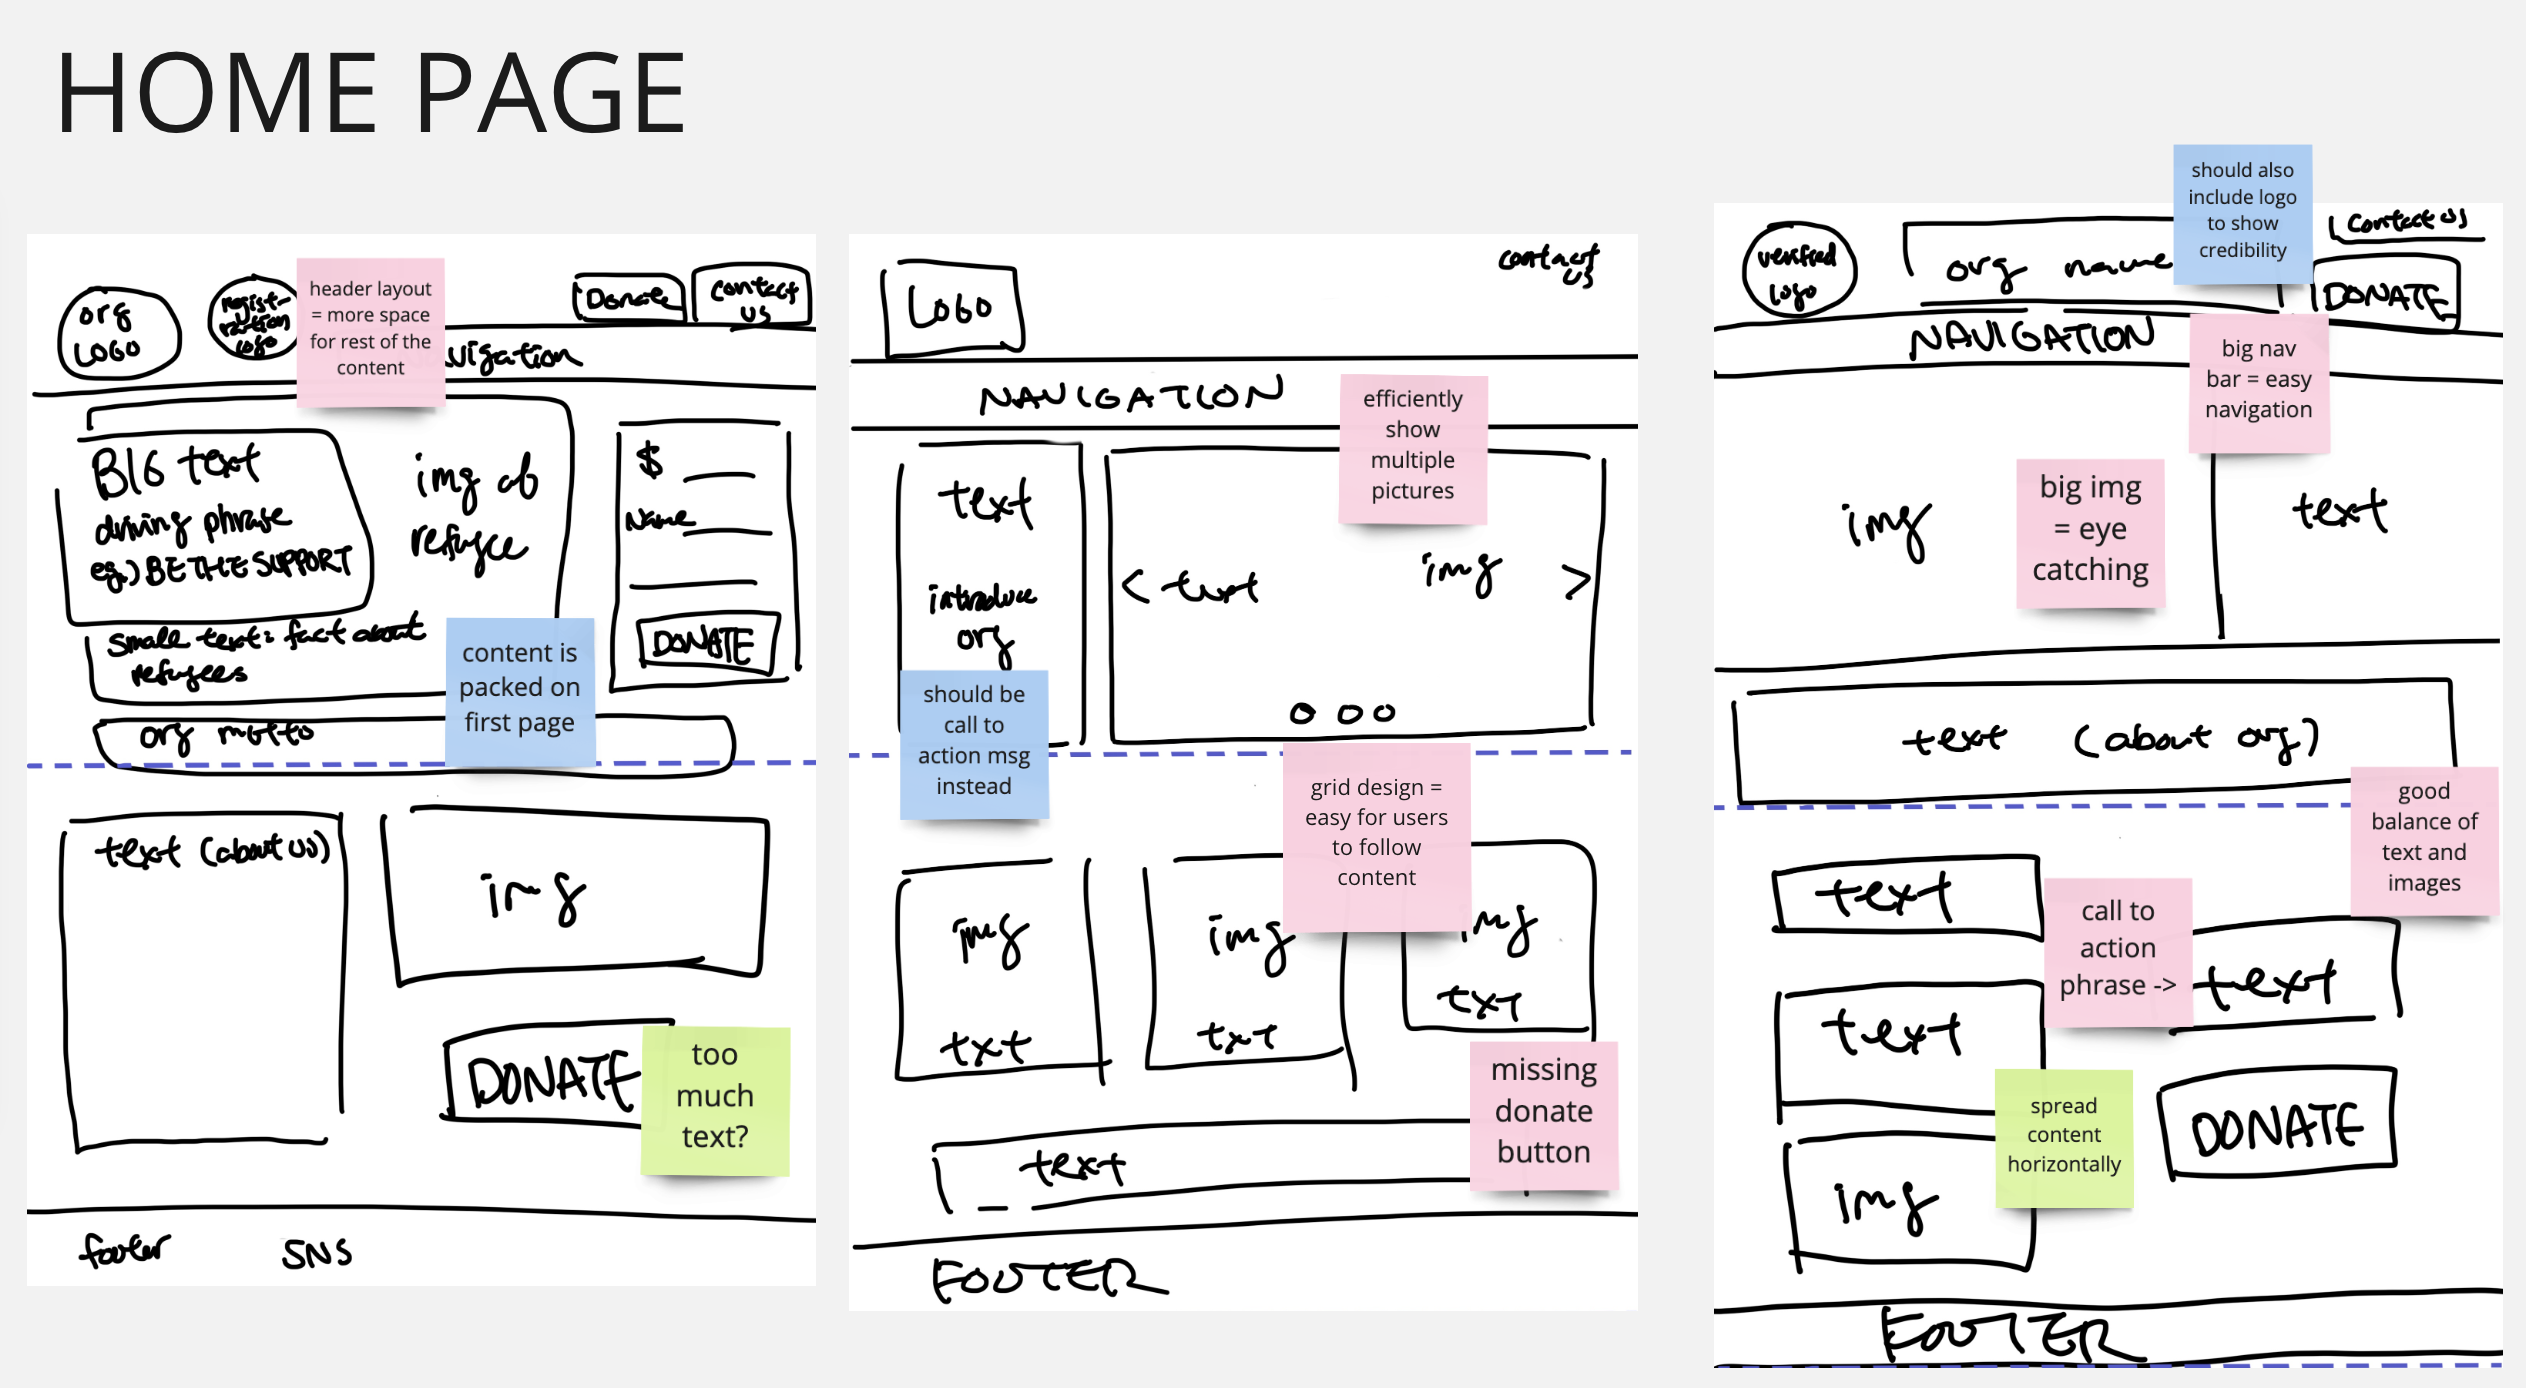 HOME PAGE
org
LOGO
regist-
ration
logo
header layout
= more space
for rest of the
content
Donate
contact
us
Navigation
BIG text
driving phrase
eg.) BE THE SUPPORT
img of
refugee
$
Name
DONATE
small text: fact about
refugees
content is
packed on
first page
org motto
text (about us)
img
DONATE
too
much
text?
footer
SNS
LOGO
contact
us
NAVIGATION
efficiently
show
multiple
pictures
text
introduce
org
< text
img >
should be
call to
action msg
instead
grid design =
easy for users
to follow
content
img
txt
img
txt
img
txt
missing
donate
button
text
FOOTER
verified
logo
org name
should also
include logo
to show
credibility
Contact us
DONATE
NAVIGATION
big nav
bar = easy
navigation
img
big img
= eye
catching
text
text (about org)
good
balance of
text and
images
text
call to
action
phrase ->
text
text
spread
content
horizontally
DONATE
img
FOOTER